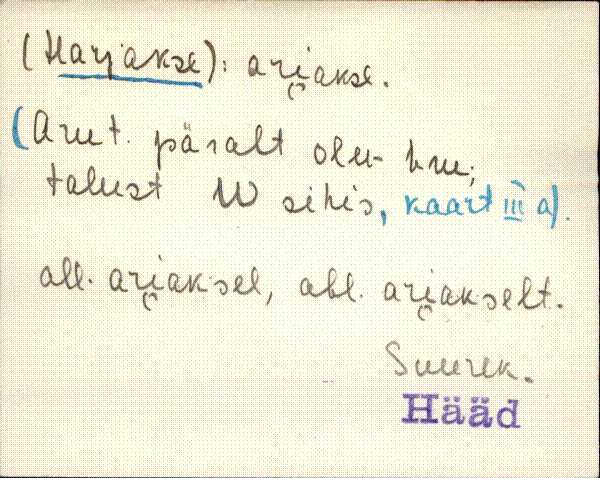 (Harjakse): ari̯akse.
(Arut. päralt olu- hru;
talust W sihis, kaart III a).
all. ari̯aksel, abl. ari̯akselt.
Suurek.
Hääd